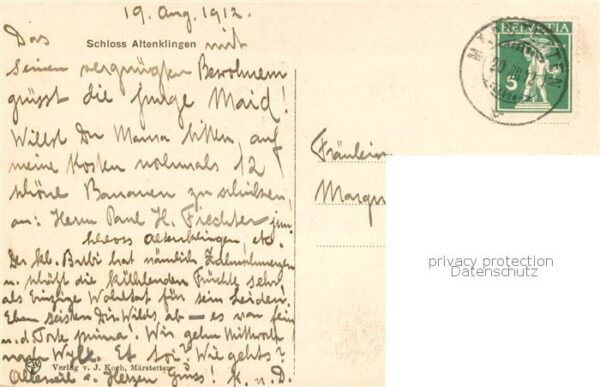 19. Aug. 1912.
Das Schloss Altenklingen mit
seinen vergnügten Bewohnern
grüsst die junge Maid!
Willst Du Mama bitten, auf
meine Kosten nochmals 12
schöne Bananen zu schicken,
an: Herrn Paul H. Frechter jun
Schloss Altenklingen, etc.
Der kl. Bubi hat nämlich
u. die kühlenden Früchte sehr
als Einzige Wohltat für sein Leiden.
Eben Dir Wilds ab – es war fein
u. d. Torte prima! Wir gehn Mittwoch
nach Et toi? Wie gehts?
Allerseits Herzen Gruss! H. u. D.
Verlag v. J. Koch, Märstetten
HELVETIA
5
Fräulein
Margu
privacy protection
Datenschutz